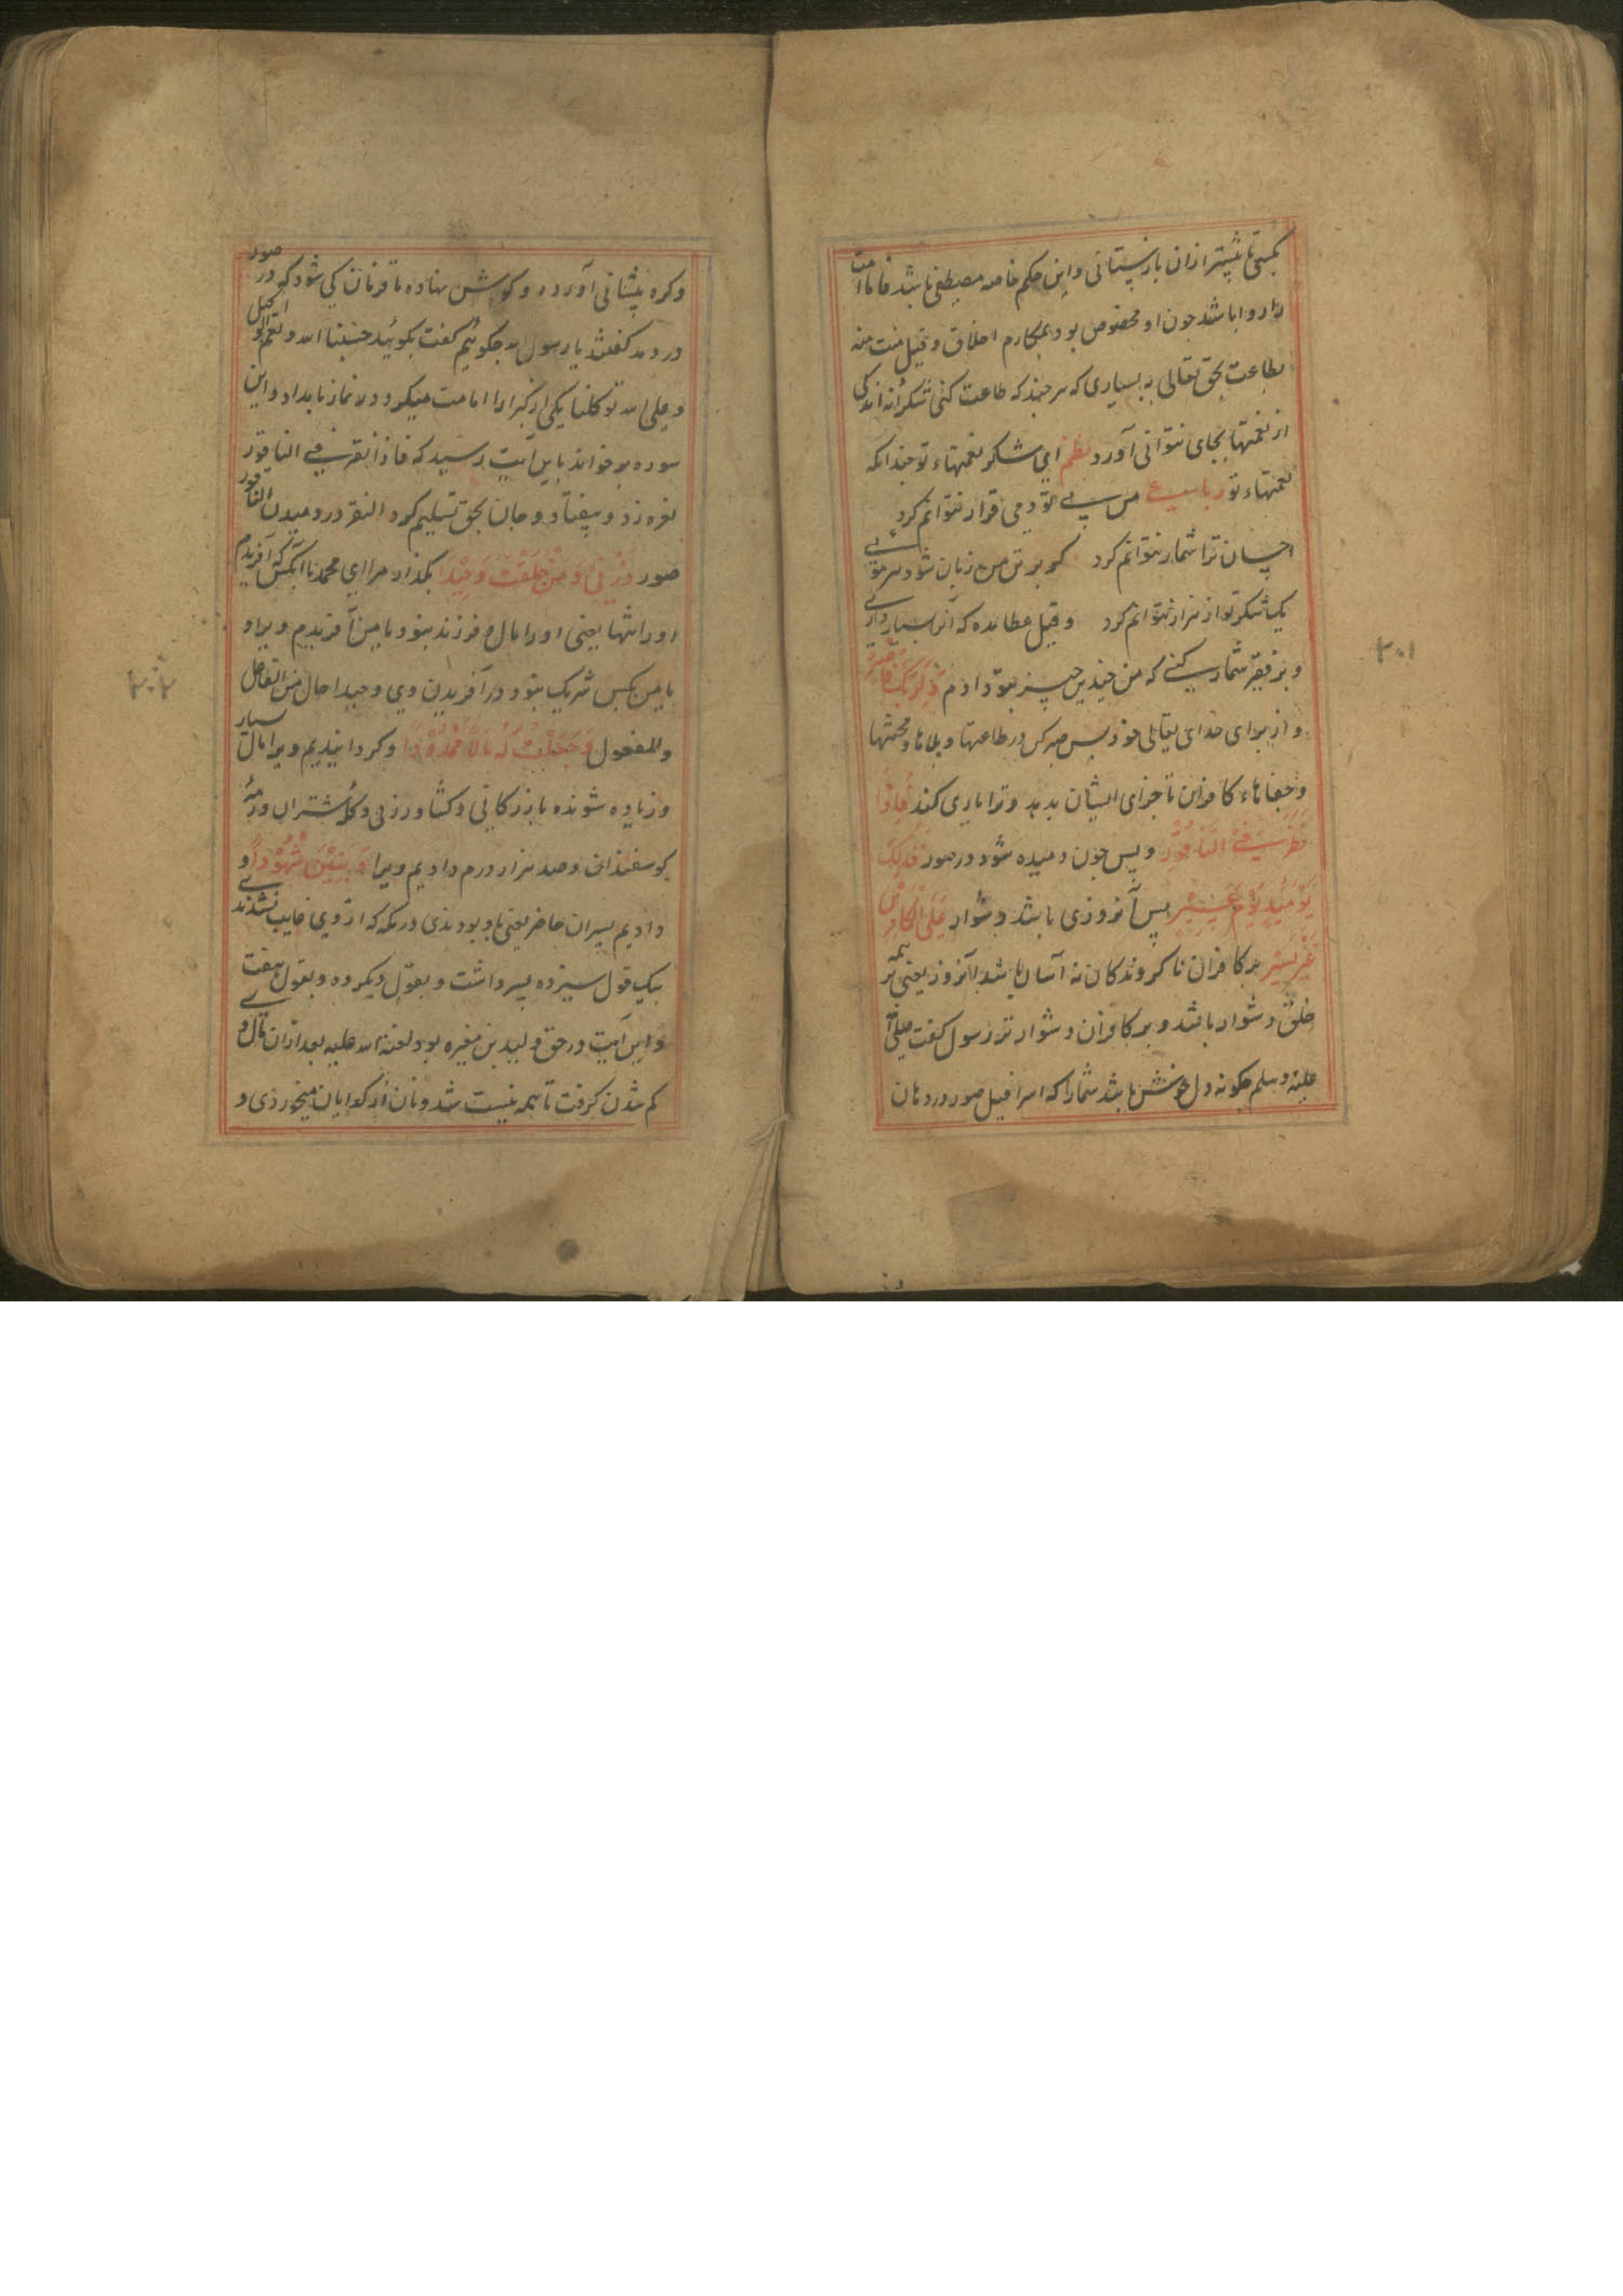 بکسی تا بیشتر ازان بازستانی و این حکم خاصه مصطفی باشد فاما امت
را روا باشد چون او مخصوص بود بمکارم اخلاق و قیل منت منه
بطاعت بحق تعالی به بسیاری که هر چند که طاعت کنی شکرانه اندکی
از نعمتها بجای نتوانی آورد نظم ای شکر نعمتهاء تو چندانکه
نعمتهاء تو رباعی من بی تو دمی قرار نتوانم کرد
احسان ترا شمار نتوانم کرد گر بر تن من زبان شود هر موئی
یک شکر تو از هزار نتوانم کرد و قیل عطا مده که آنرا بسیار داری
و بر فقیر شمار کنی که من چندین چیز بتو دادم وَلِرَبِّکَ فَاصْبِرْ
و از برای خدای تعالی خود پس صبر کن در طاعتها و بلاها و محنتها
و جفاهاء کافران تا جزای ایشان بدهد و ترا یاری کند فَاِذَا
نُقِرَ فِی النَّاقُوْرِ و پس چون دمیده شود در صور فَذٰلِکَ
یَوْمَئِذٍ یَوْمٌ عَسِیْرٌ پس آنروزی باشد دشوار عَلَی الْکَافِرِیْنَ
غَیْرُ یَسِیْرٍ بر کافران ناگروندگان نه آسان باشد آنروز یعنی بر همه
خلق دشوار باشد و بر کافران دشوار تر رسول گفت صلی الله
علیه و سلم چگونه دل خوش باشد شما را که اسرافیل صور در دهان
۲۰۱
و گره پیشانی آورده و گوش نهاده تا فرمان کی شود که در صور
در دمد گفتند یا رسول الله چگوئیم گفت بگوئید حسبنا الله و نعم الوکیل
و علی الله توکلنا یکی از بزرگان امامت میکرد در نماز بامداد و این
سوره بر خواند باین آیت رسید که فاذا نقر فی الناقور
نعره زد و بیفتاد و جان بحق تسلیم کرد النقر در دمیدن الناقور
صور ذَرْنِیْ وَ مَنْ خَلَقْتُ وَحِیْدًا بگذار مرا ای محمد با آنکس که آفریدم
او را تنها یعنی او را مال و فرزند نبود یا من آفریدم ویرا و
با من کس شریک نبود در آفریدن وی وحیدا حال من الفاعل
و المفعول وَ جَعَلْتُ لَهُ مَالًا مَّمْدُوْدًا و گردانیدیم ویرا مال بسیار
و زیاده شونده بازرگانی و کشاورزی و گله شتران و رمهٔ
گوسفندان و صد هزار درم دادیم ویرا وَ بَنِیْنَ شُهُوْدًا و
دادیم پسران حاضر یعنی با وی بودندی در مکه که از وی غایب نشدندی
بیک قول سیزده پسر داشت و بقول دیگر ده و بقول هفت
و این آیت در حق ولید بن مغیره بود لعنة الله علیه بعد ازان مال وی
کم شدن گرفت تا همه نیست شد و نان از گدایان میخوردی و
۲۰۲